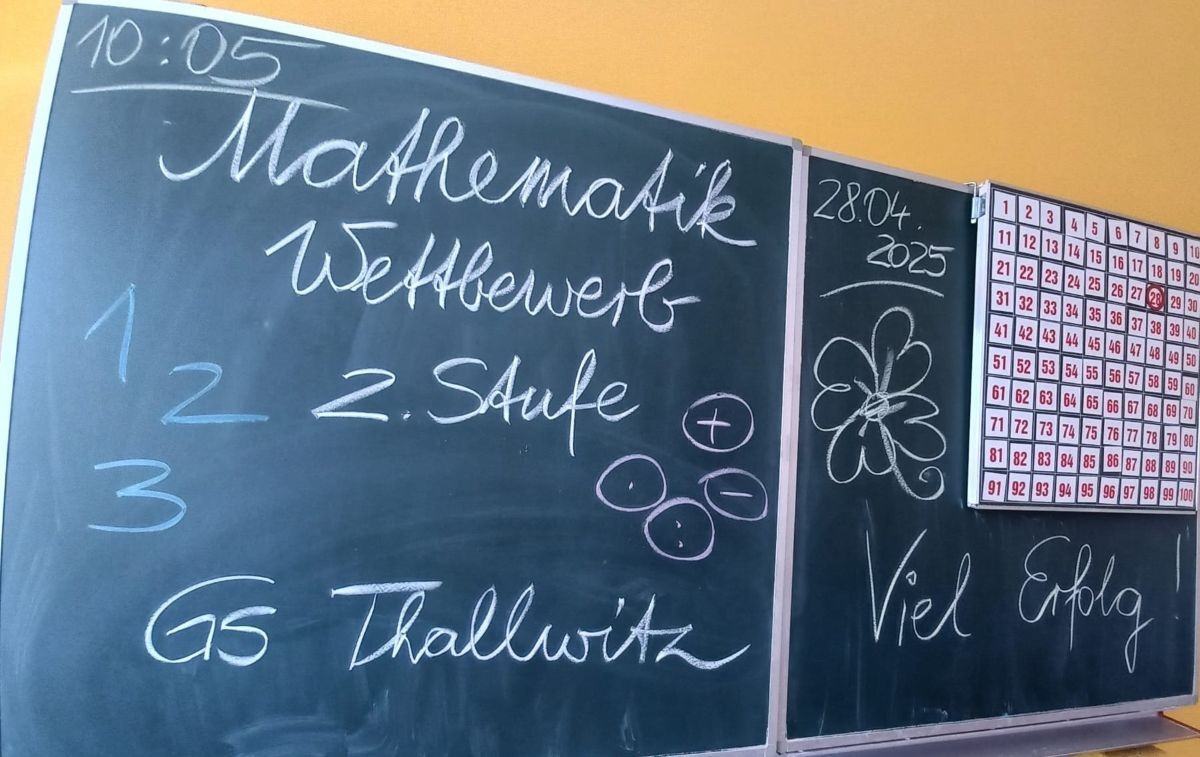 10:05
Mathematik
Wettbewerb
1
2
2. Stufe
3
+
· −
:
GS Thallwitz
28.04.
2025
Viel Erfolg!
1 2 3 4 5 6 7 8 9 10
11 12 13 14 15 16 17 18 19 20
21 22 23 24 25 26 27 28 29 30
31 32 33 34 35 36 37 38 39 40
41 42 43 44 45 46 47 48 49 50
51 52 53 54 55 56 57 58 59 60
61 62 63 64 65 66 67 68 69 70
71 72 73 74 75 76 77 78 79 80
81 82 83 84 85 86 87 88 89 90
91 92 93 94 95 96 97 98 99 100